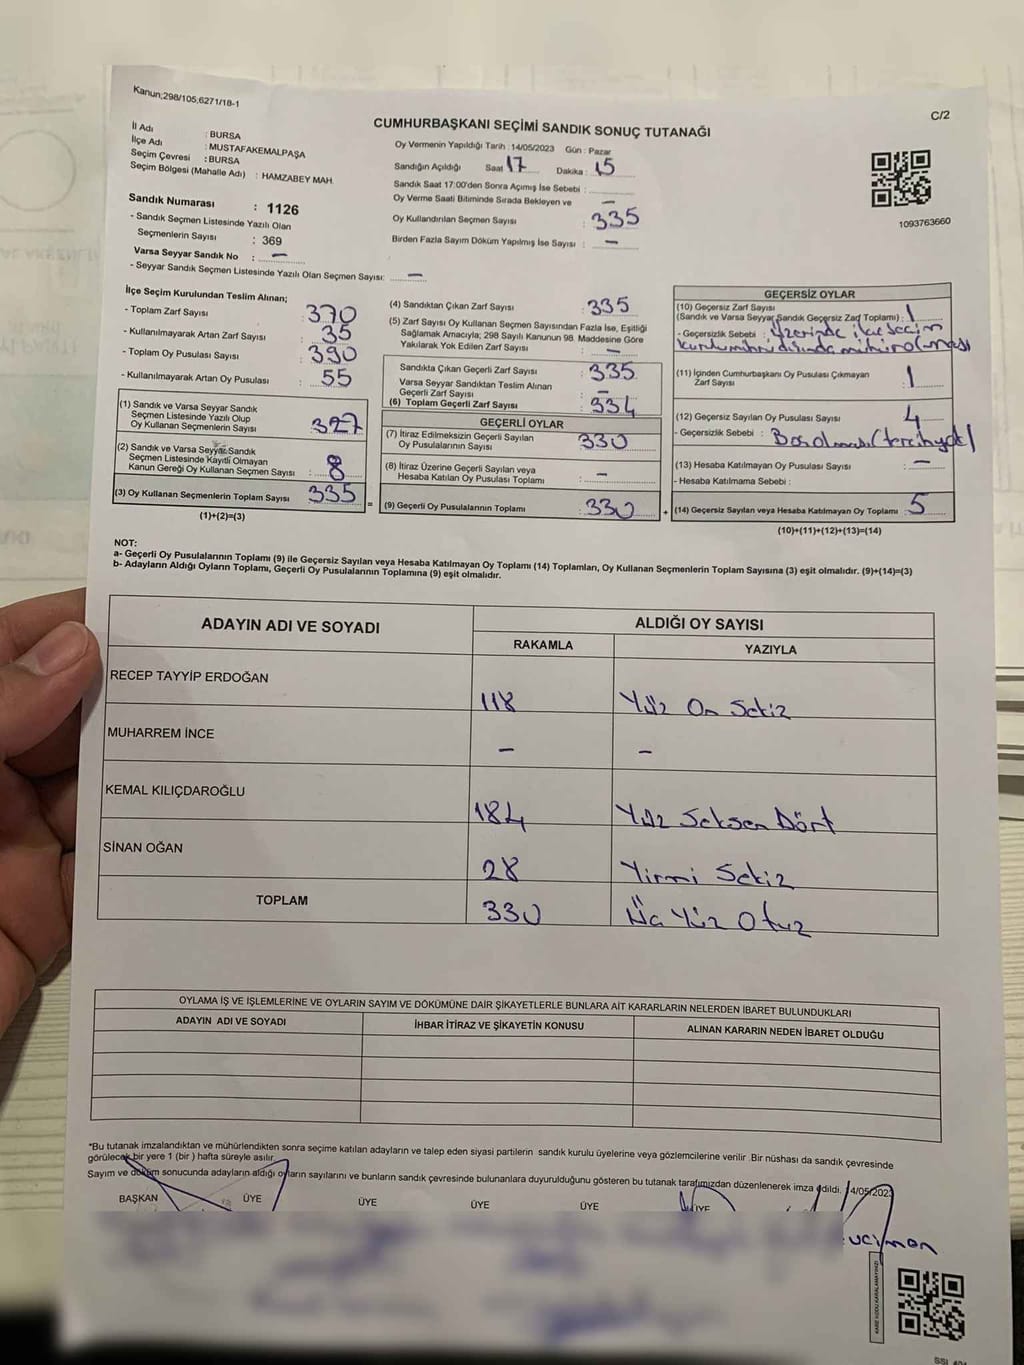 Kanun;298/105;6271/18-1
C/2
CUMHURBAŞKANI SEÇİMİ SANDIK SONUÇ TUTANAĞI
İl Adı : BURSA
İlçe Adı : MUSTAFAKEMALPAŞA
Seçim Çevresi : BURSA
Seçim Bölgesi (Mahalle Adı) : HAMZABEY MAH.
Sandık Numarası : 1126
- Sandık Seçmen Listesinde Yazılı Olan
Seçmenlerin Sayısı : 369
Varsa Seyyar Sandık No : -
- Seyyar Sandık Seçmen Listesinde Yazılı Olan Seçmen Sayısı: -
Oy Vermenin Yapıldığı Tarih : 14/05/2023 Gün : Pazar
Sandığın Açıldığı Saat 17 Dakika : 15
Sandık Saat 17:00'den Sonra Açımış İse Sebebi :
Oy Verme Saati Bitiminde Sırada Bekleyen ve -
Oy Kullandırılan Seçmen Sayısı : 335
Birden Fazla Sayım Döküm Yapılmış İse Sayısı : -
1093763660
İlçe Seçim Kurulundan Teslim Alınan;
- Toplam Zarf Sayısı : 370
- Kullanılmayarak Artan Zarf Sayısı : 35
- Toplam Oy Pusulası Sayısı : 390
- Kullanılmayarak Artan Oy Pusulası : 55
(1) Sandık ve Varsa Seyyar Sandık
Seçmen Listesinde Yazılı Olup
Oy Kullanan Seçmenlerin Sayısı : 327
(2) Sandık ve Varsa Seyyar Sandık
Seçmen Listesinde Kayıtlı Olmayan
Kanun Gereği Oy Kullanan Seçmen Sayısı : 8
(3) Oy Kullanan Seçmenlerin Toplam Sayısı : 335
(1)+(2)=(3)
(4) Sandıktan Çıkan Zarf Sayısı : 335
(5) Zarf Sayısı Oy Kullanan Seçmen Sayısından Fazla İse, Eşitliği
Sağlamak Amacıyla; 298 Sayılı Kanunun 98. Maddesine Göre
Yakılarak Yok Edilen Zarf Sayısı : -
Sandıkta Çıkan Geçerli Zarf Sayısı : 335
Varsa Seyyar Sandıktan Teslim Alınan
Geçerli Zarf Sayısı : -
(6) Toplam Geçerli Zarf Sayısı : 334
GEÇERLİ OYLAR
(7) İtiraz Edilmeksizin Geçerli Sayılan
Oy Pusulalarının Sayısı : 330
(8) İtiraz Üzerine Geçerli Sayılan veya
Hesaba Katılan Oy Pusulası Toplamı : -
= (9) Geçerli Oy Pusulalarının Toplamı : 330 +
GEÇERSİZ OYLAR
(10) Geçersiz Zarf Sayısı
(Sandık ve Varsa Seyyar Sandık Geçersiz Zarf Toplamı) : 1
- Geçersizlik Sebebi : Üzerinde ilçe seçim
kurulu mührü dışında mühür olması
(11) İçinden Cumhurbaşkanı Oy Pusulası Çıkmayan
Zarf Sayısı : 1
(12) Geçersiz Sayılan Oy Pusulası Sayısı : 4
- Geçersizlik Sebebi : Boş olması (tercih yok)
(13) Hesaba Katılmayan Oy Pusulası Sayısı : -
- Hesaba Katılmama Sebebi :
(14) Geçersiz Sayılan veya Hesaba Katılmayan Oy Toplamı : 5
(10)+(11)+(12)+(13)=(14)
NOT:
a- Geçerli Oy Pusulalarının Toplamı (9) ile Geçersiz Sayılan veya Hesaba Katılmayan Oy Toplamı (14) Toplamları, Oy Kullanan Seçmenlerin Toplam Sayısına (3) eşit olmalıdır. (9)+(14)=(3)
b- Adayların Aldığı Oyların Toplamı, Geçerli Oy Pusulalarının Toplamına (9) eşit olmalıdır.
ADAYIN ADI VE SOYADI ALDIĞI OY SAYISI
RAKAMLA YAZIYLA
RECEP TAYYİP ERDOĞAN 118 Yüz On Sekiz
MUHARREM İNCE - -
KEMAL KILIÇDAROĞLU 184 Yüz Seksen Dört
SİNAN OĞAN 28 Yirmi Sekiz
TOPLAM 330 Üç Yüz Otuz
OYLAMA İŞ VE İŞLEMLERİNE VE OYLARIN SAYIM VE DÖKÜMÜNE DAİR ŞİKAYETLERLE BUNLARA AİT KARARLARIN NELERDEN İBARET BULUNDUKLARI
ADAYIN ADI VE SOYADI İHBAR İTİRAZ VE ŞİKAYETİN KONUSU ALINAN KARARIN NEDEN İBARET OLDUĞU
*Bu tutanak imzalandıktan ve mühürlendikten sonra seçime katılan adayların ve talep eden siyasi partilerin sandık kurulu üyelerine veya gözlemcilerine verilir .Bir nüshası da sandık çevresinde
görülecek bir yere 1 (bir ) hafta süreyle asılır.
Sayım ve döküm sonucunda adayların aldığı oyların sayılarını ve bunların sandık çevresinde bulunanlara duyurulduğunu gösteren bu tutanak tarafımızdan düzenlenerek imza edildi. 14/05/2023
BAŞKAN ÜYE ÜYE ÜYE ÜYE ÜYE